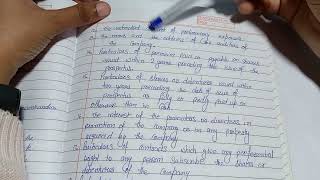 the estimated amount of preliminary expenses
the names and the address of the auditors of
the Company.
Particulars of premium paid or payable on shares
issued within 2 years preceding the issue of the
prospectus
Particulars of shares or debentures issued within
two years preceding the date of issue of
prospectus as fully or partly paid up or
otherwise than in cash
the interest of the promoters or in directors in
promotion of the company or in any property
acquired by the Company
Particulars of contracts which give any preferential
right to any person subscribe the shares or
debentures of the Company